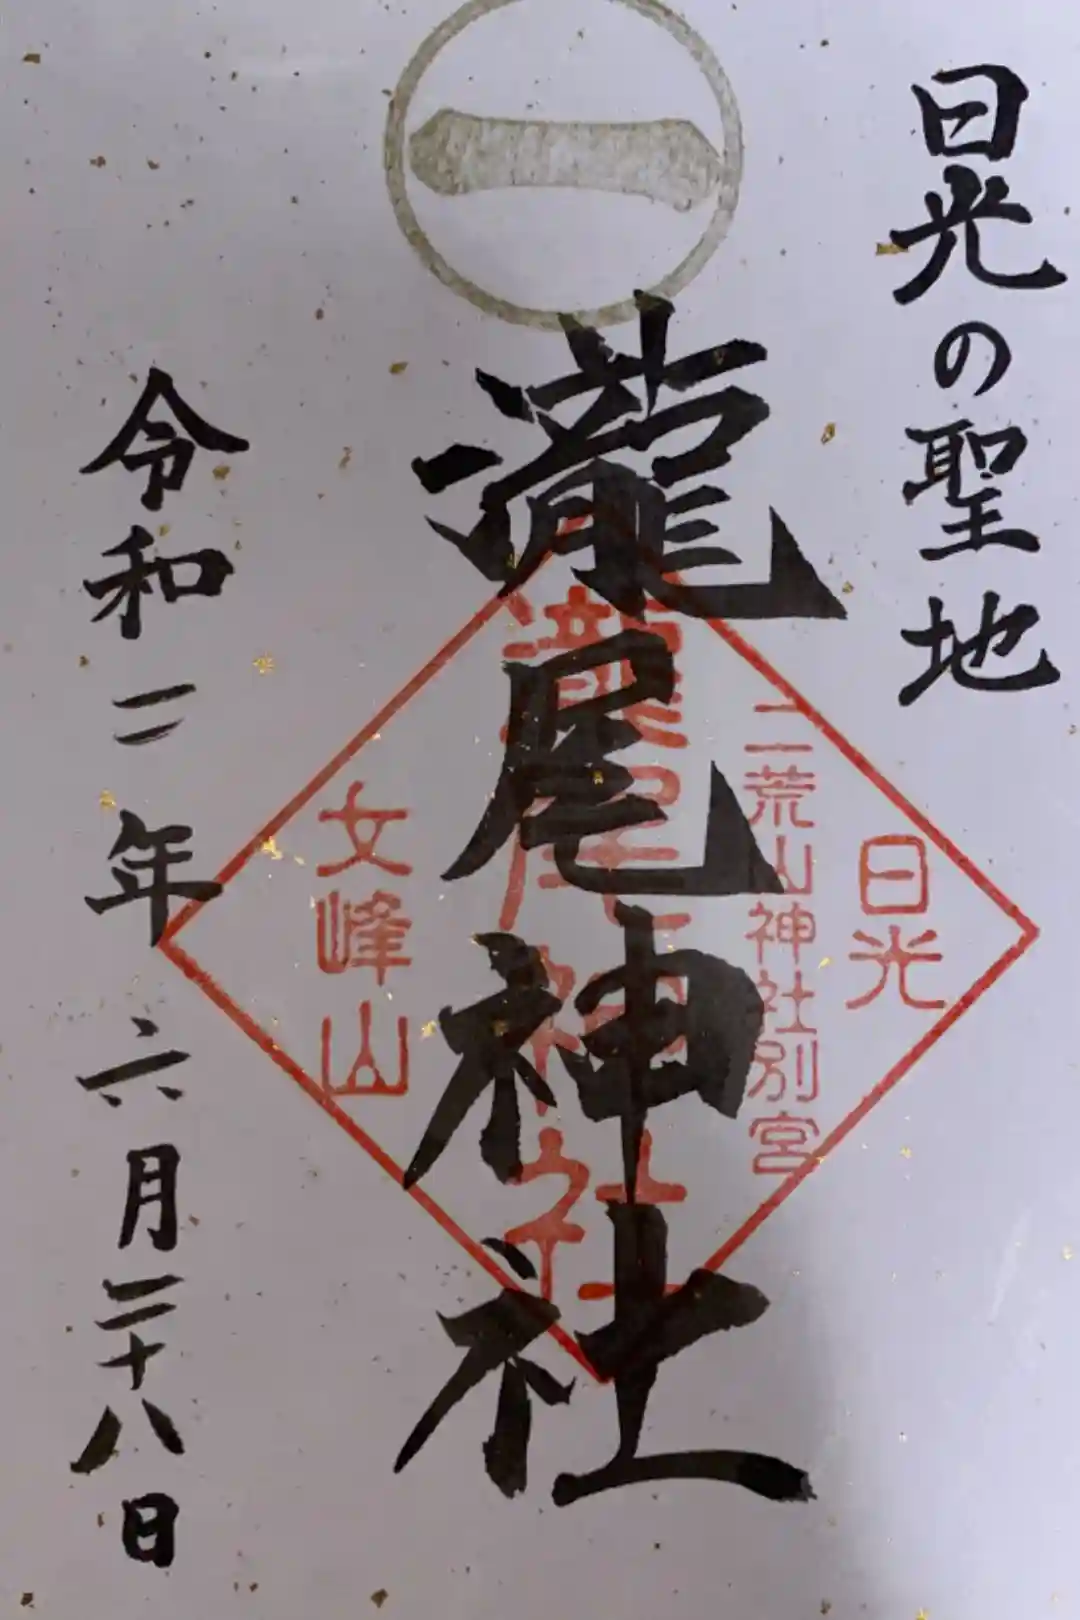 一
日光の聖地
瀧尾神社
令和二年六月二十八日
日光
二荒山神社別宮
瀧尾神社
女峰山